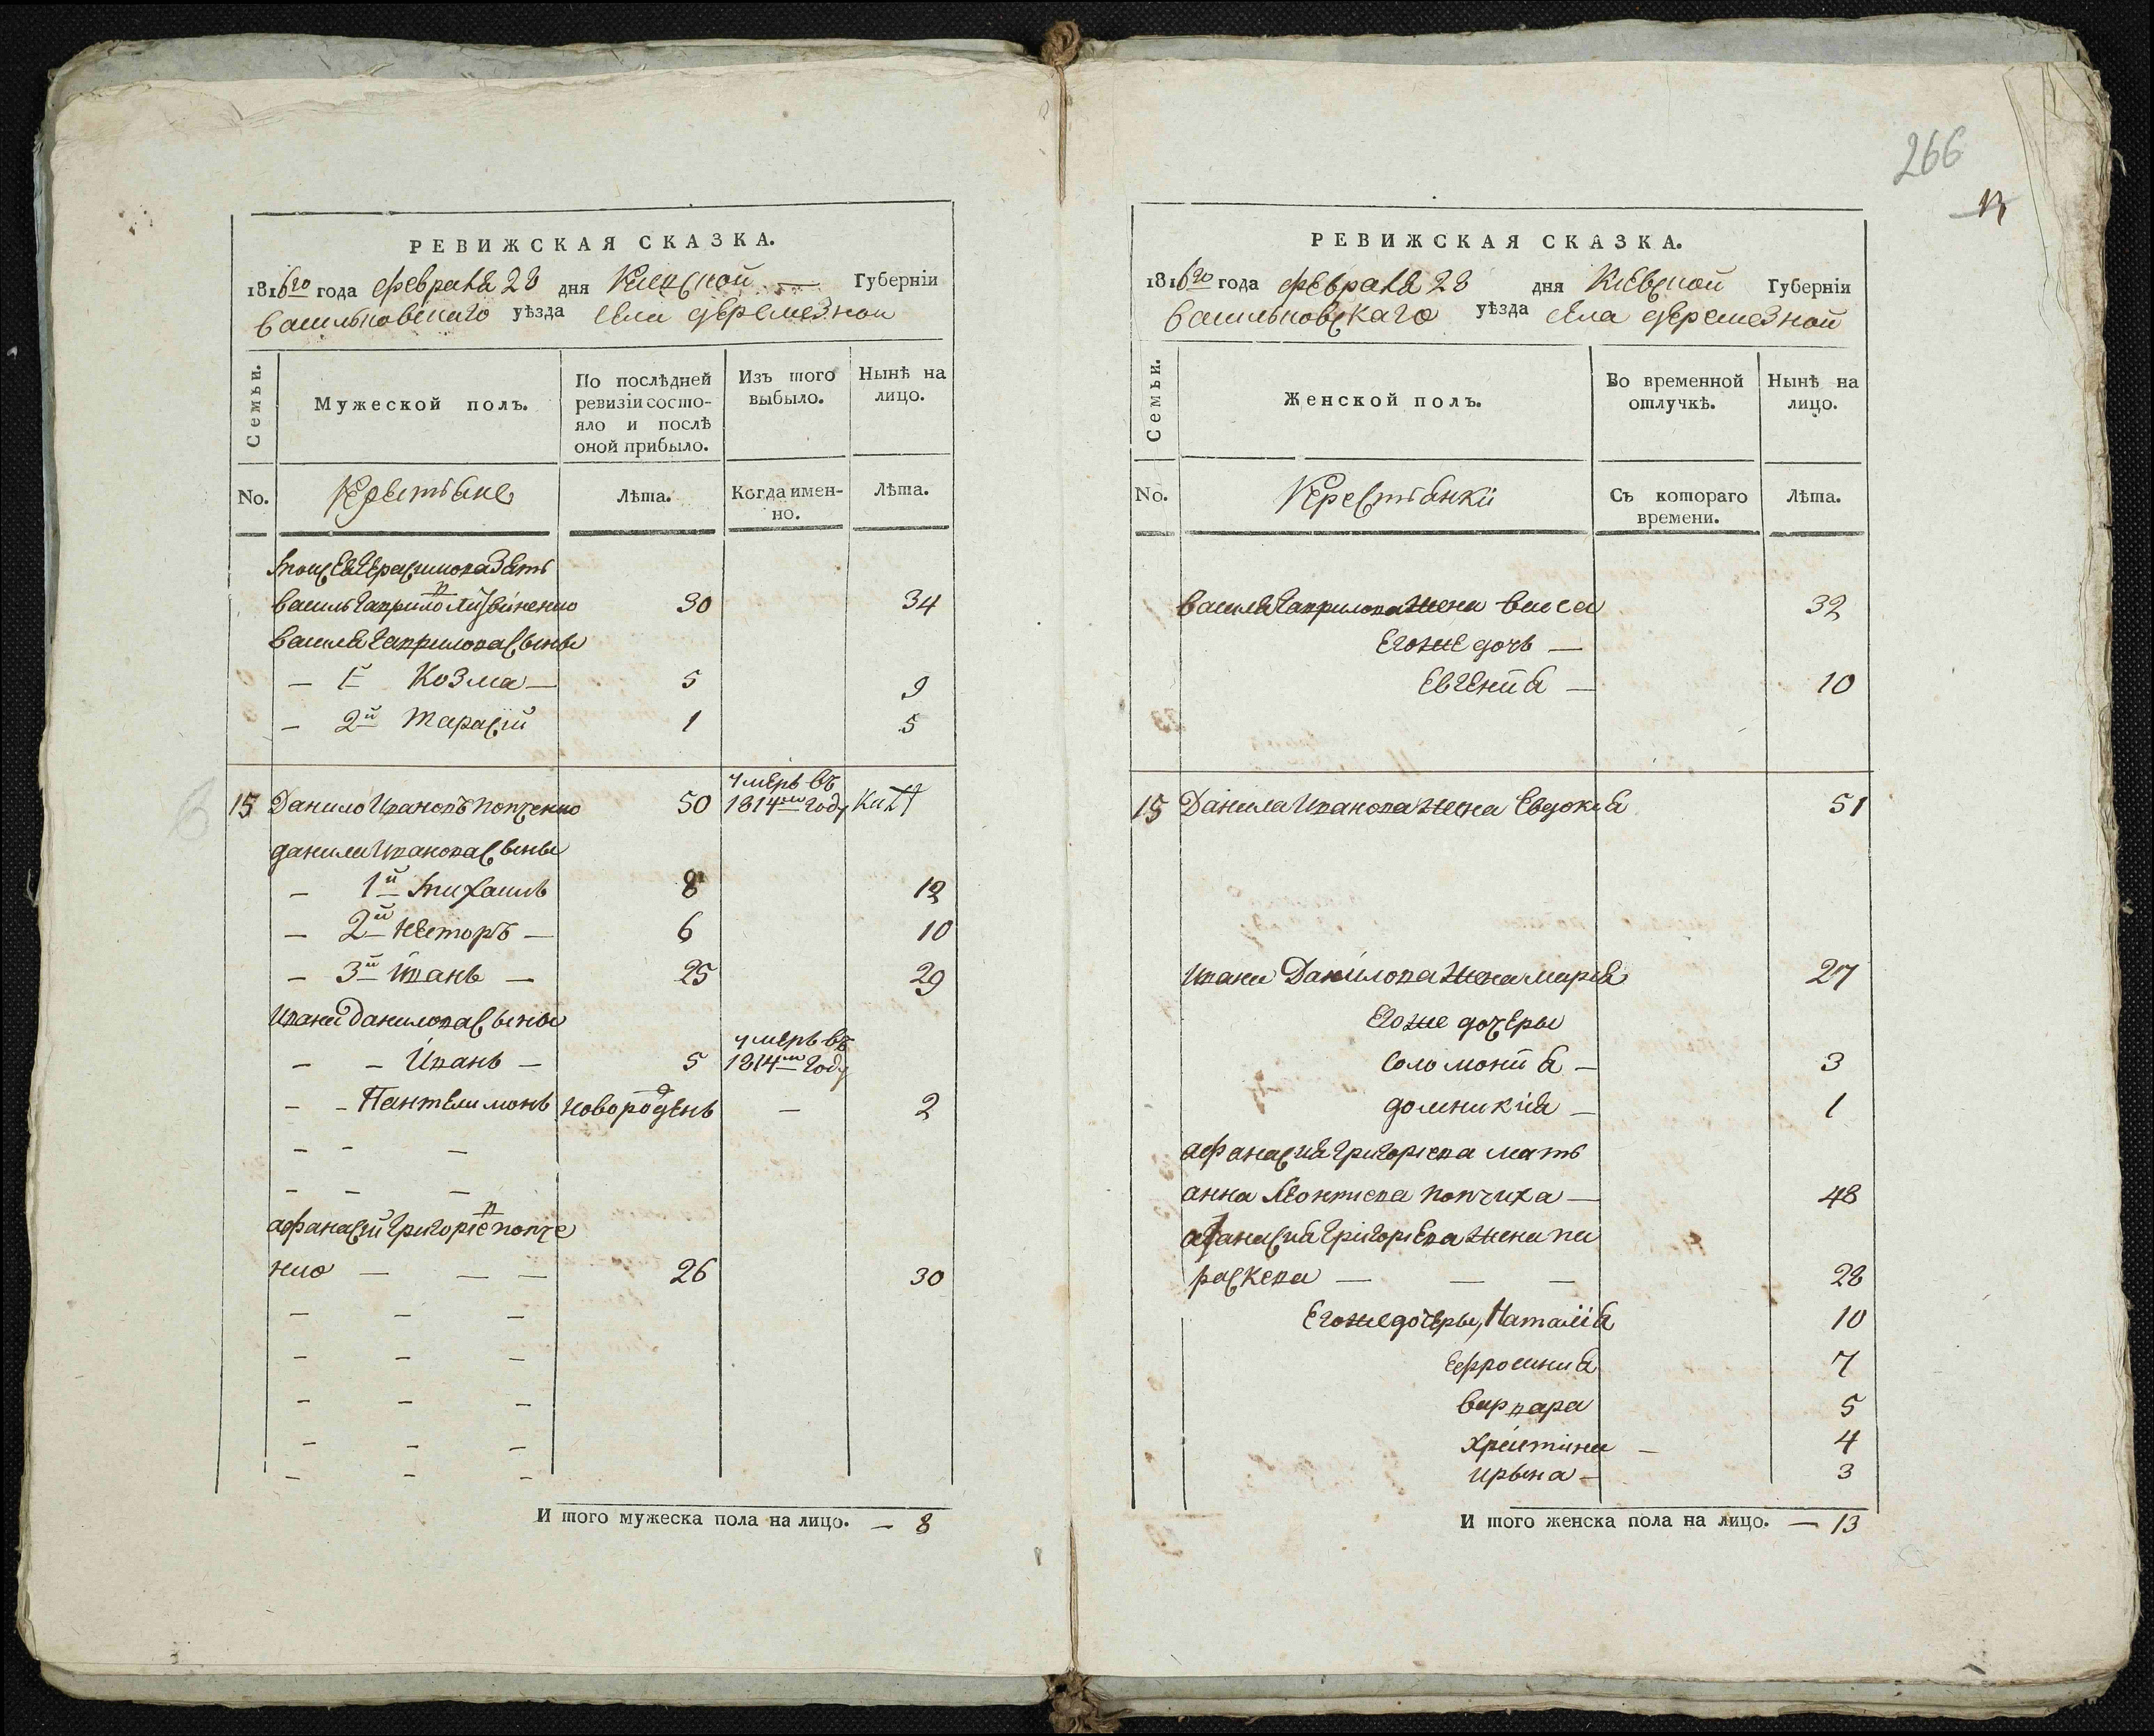 РЕВИЖСКАЯ СКАЗКА.
1816го года февраля 28 дня Киевской Губерніи
васильковского уѣзда села деремезной
Семьи.
Мужеской полъ.
По послѣдней ревизіи состо-
яло и послѣ
оной прибыло.
Изъ того
выбыло.
Нынѣ на
лицо.
No.
Крестьяне
Лѣта.
Когда имен-
но.
Лѣта.
зять
василь Гаврилов Литвиненко 30 34
василя Гаврилова сыны
1й Козма 5 9
2й Тарасій 1 5
15 Данило Ивановъ Попченко 50 умеръ въ 1814м году
данила Иванова сыны
1й михаилъ 8 12
2й Несторъ 6 10
3й Иванъ 25 29
Ивана Данилова сыны
Иванъ 5 умеръ въ 1814м году
Пантелимонъ новорожденъ 2
афанасій Григоріев попче
нко 26 30
И того мужеска пола на лицо. 8
266
РЕВИЖСКАЯ СКАЗКА.
1816го года февраля 28 дня Киевской Губерніи
васильковскаго уѣзда села деремезной
Семьи.
Женской полъ.
Во временной
отлучкѣ.
Нынѣ на
лицо.
No.
Крестьянкі
Съ котораго
времени.
Лѣта.
василя Гаврилова жена васса 32
Егоже дочь
Евгенія 10
15 Данила Иванова жена Евдокія 51
Ивана Данилова жена марія 27
Егоже дочеры
соломонія 3
домникія 1
афанасия Григоріева мать
анна Леонтиева попчиха 48
афанасия Григоріева жена па
раскева 28
Егоже дочеры, Наталія 10
Ефросиния 7
варвара 5
христина 4
ирына 3
И того женска пола на лицо. 13